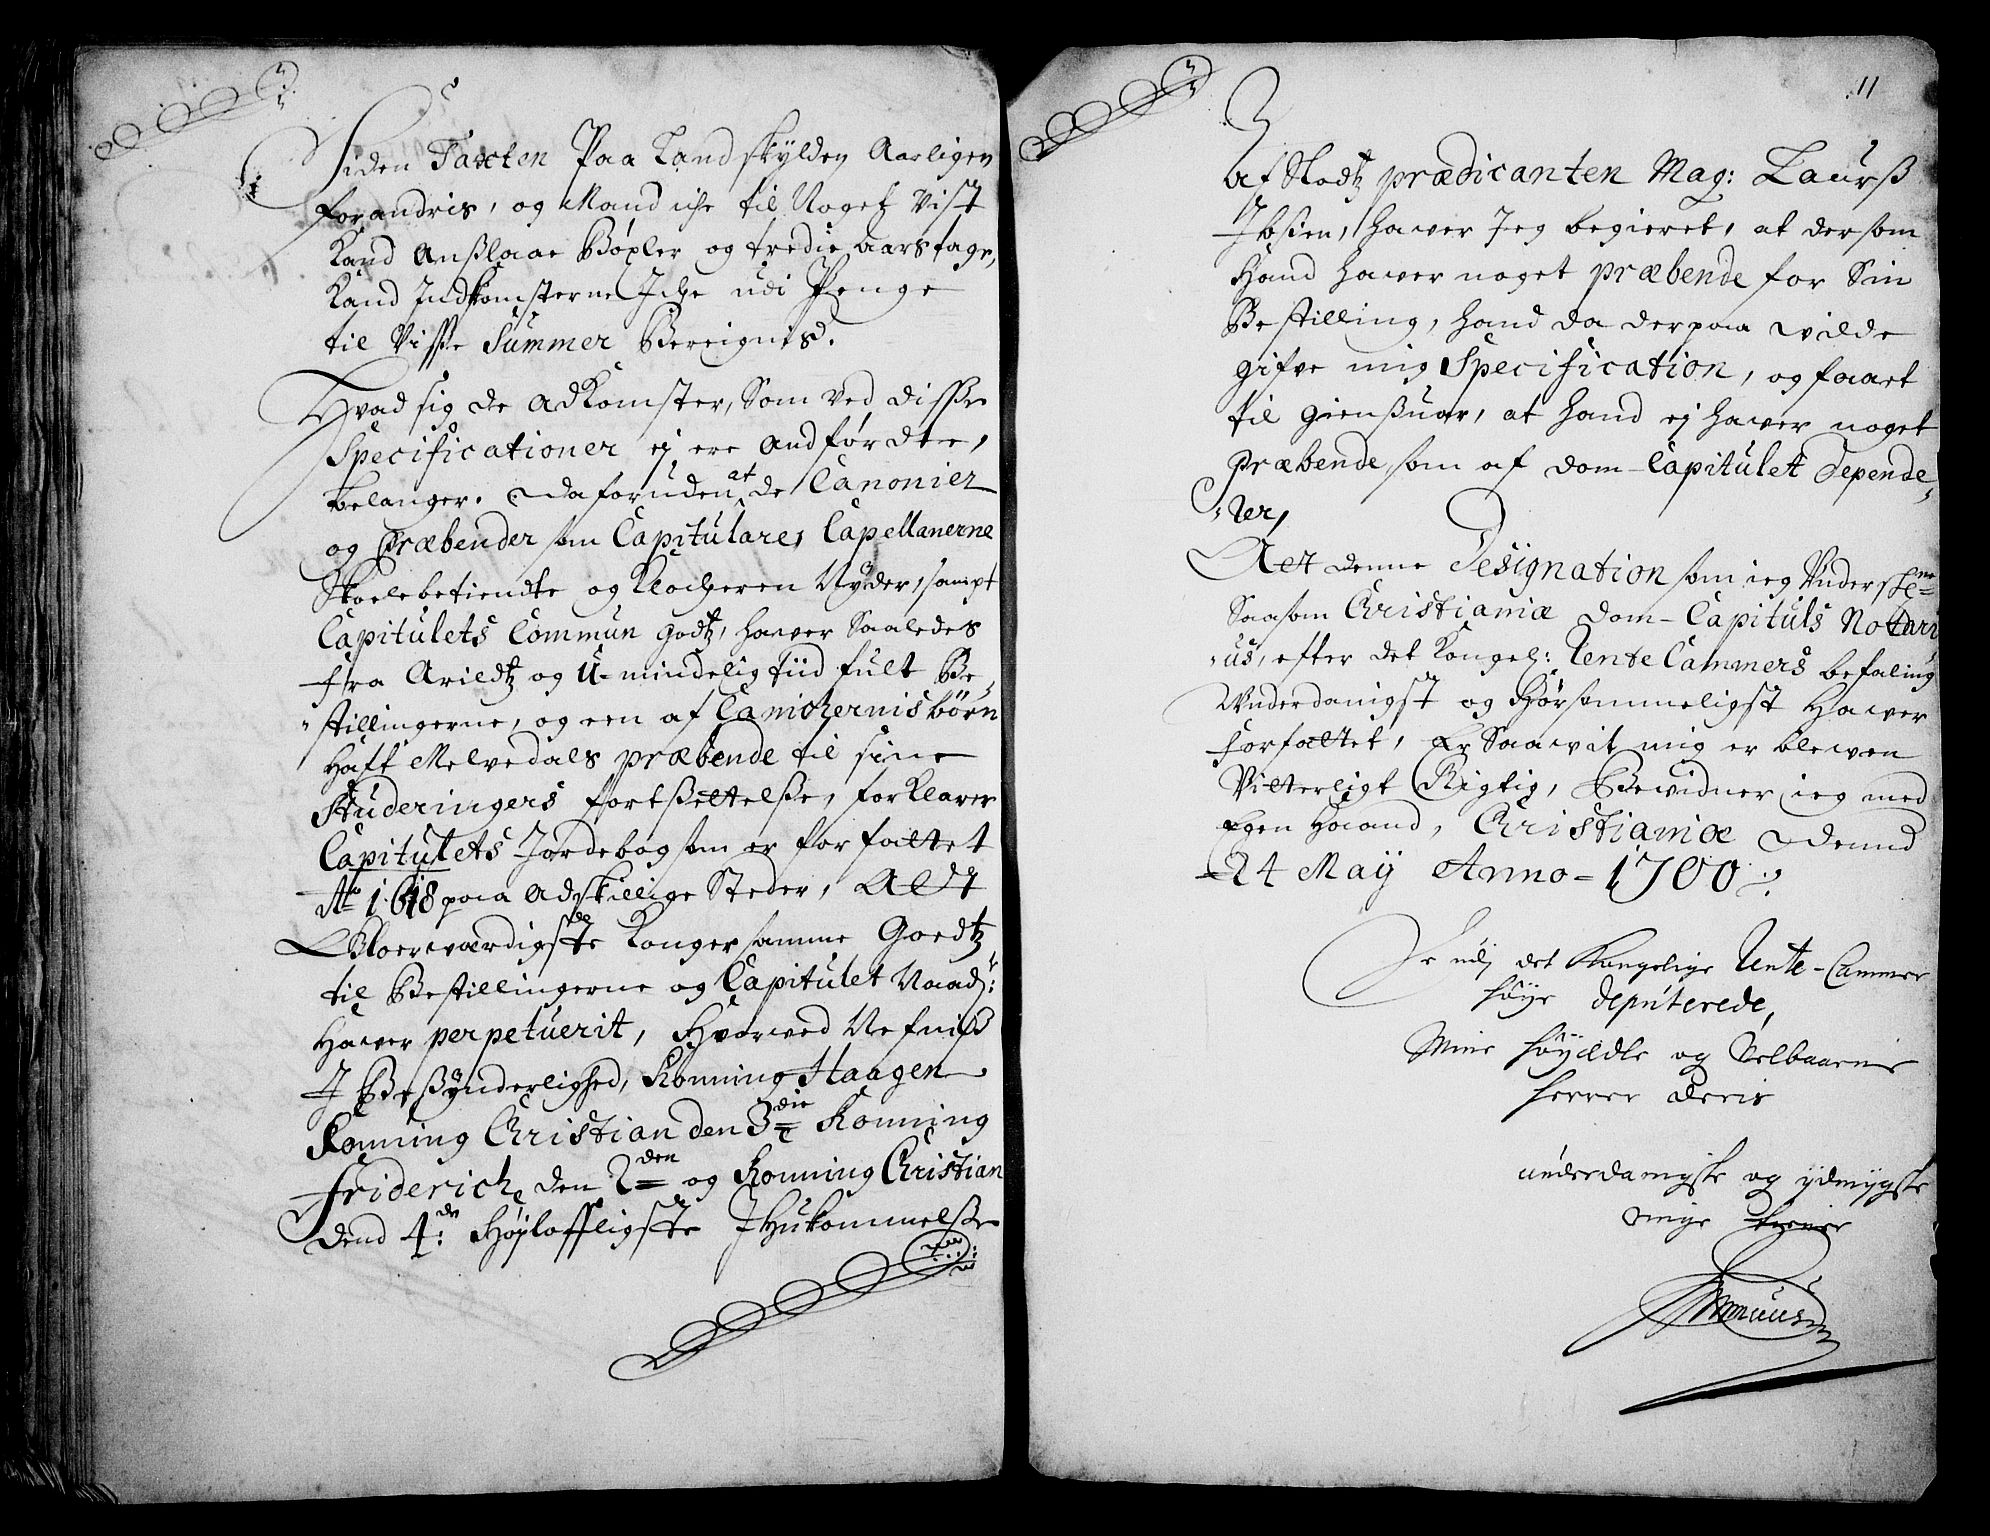 Siden Taxten Paa Landskylden Aarligen
forandris, og Mand iche til Noget Vist
Kand Anßlaae Bøxler og tredie aarstage,
Kand Indkomsterne Iche udi Penge
til Visse Summer Bereignes.
Hvad sig de adkomster, Som ved disse
Specificationer ej ere andførdte,
belanger. Da foruden at de Canonier
og Præbender som Capitulares, Capellanerne
Skoelebetiendte og Klocheren Nyder, sampt
Capitulets Commun godtz, hawer Saaledes
fra Arildtz og U-mindelig tiid fult Be-
stillingerne, og een af
haft Melvedals præbende til sine
Studeringers fortßettelße, forklarer
Capitulets Jordebog som er forfattet
Ao 1618 paa adskillige Steder, Aldt
Konger samme Goedtz
til Bestillingerne og Capitulet Naadr:
hawer perpetuerit, Hvorved Nefniß
I Beßynderlighed, Konning Haagen
Konning Christian den 3die Konning
Friderich den 2den og Konning Christian
dend 4de: Høylofligste Ihukommelße
11
Af Slodtz prædicanten Mag: Laurß
Ibsien, hawer Jeg begieret, at dersom
Hand hawer noget præbende for Sin
Bestilling, hand da derpaa wilde
gifve mig Specification, og faaet
til gienßuar, at hand ej hawer noget
Præbende, som af Dom-Capitulet depende-
rer,
Aet denne Designation som ieg Underskr:ne
Saasom Christianiæ Dom-Capituls Notari
us, efter det Kongel: Rente Cammers befaling
Underdanigst og Hørsommeligst Hawer
forfattet, Er Saawit mig er blewen
Vitterligt Rigtig, Bevidner ieg med
Egen Haand, Christianiæ Dend
24 May Anno-1700
udj det Kongelige Rente-Cammer
høye deputerede,
Mine høyædle og Velbaarne
herrer deris
underdanigste og ydmygste
ringe tiener